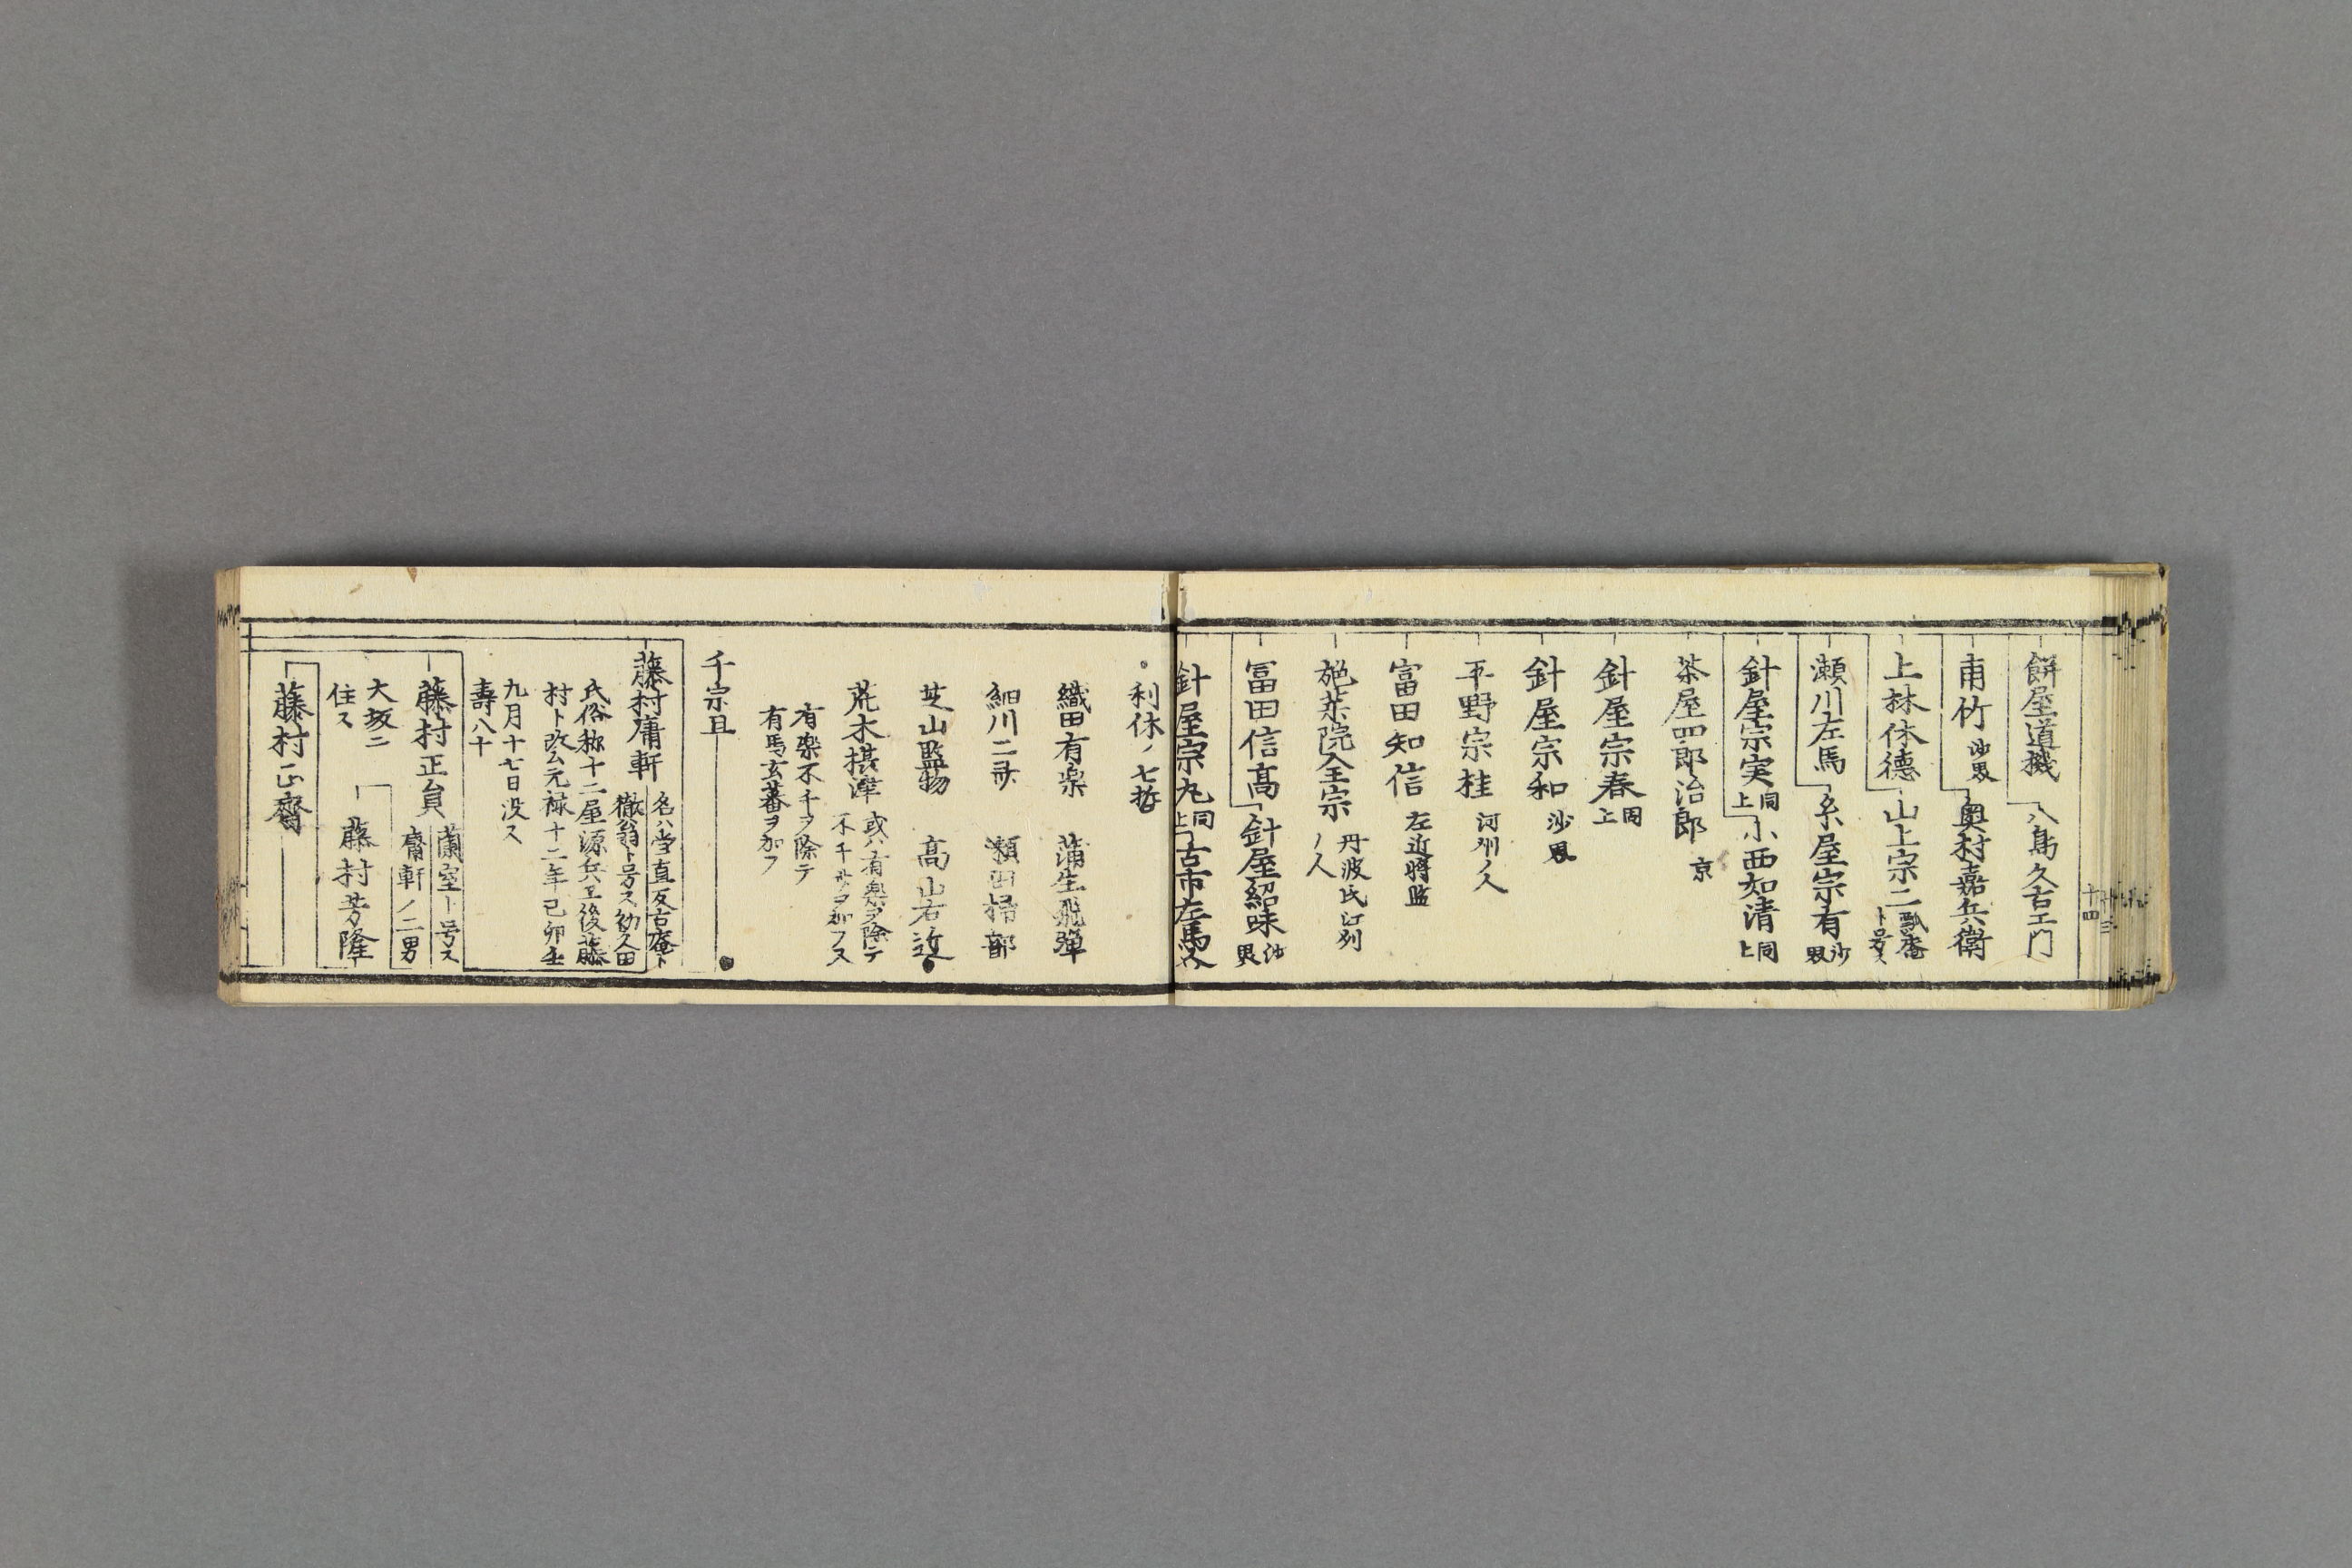 餅屋道機 八嶌久吉エ門
甫竹 沙界 奥村嘉兵衛
上林休徳 山上宗二 瓢庵ト号ス
瀬川左馬 糸屋宗有 沙界
針屋宗実 同上 小西如清 同上
茶屋四郎治郎 京
針屋宗春 同上
針屋宗和 沙界
平野宗桂 河州ノ人
富田知信 左近将監
施薬院全宗 丹波氏江州ノ人
冨田信高 針屋紹味 沙界
針屋宗九 同上 古市左馬介
十四
利休ノ七哲
織田有楽 蒲生飛弾
細川二斎 瀬田掃部
芝山監物 髙山右近
荒木摂津 或ハ有楽ヲ除テ不千斎ヲ加フス
有楽不千ヲ除テ
有馬玄蕃ヲ加フ
千宗旦
藤村庸軒 名ハ当直反古庵ト
徹翁ト号ス幼久田
氏俗称十二屋源兵エ後藤
村ト改ム元禄十二年己卯壬
九月十七日没ス
壽八十
藤村正員 蘭室ト号ス庸軒ノ二男
大坂ニ
住ス 藤村芳隆
藤村正齋